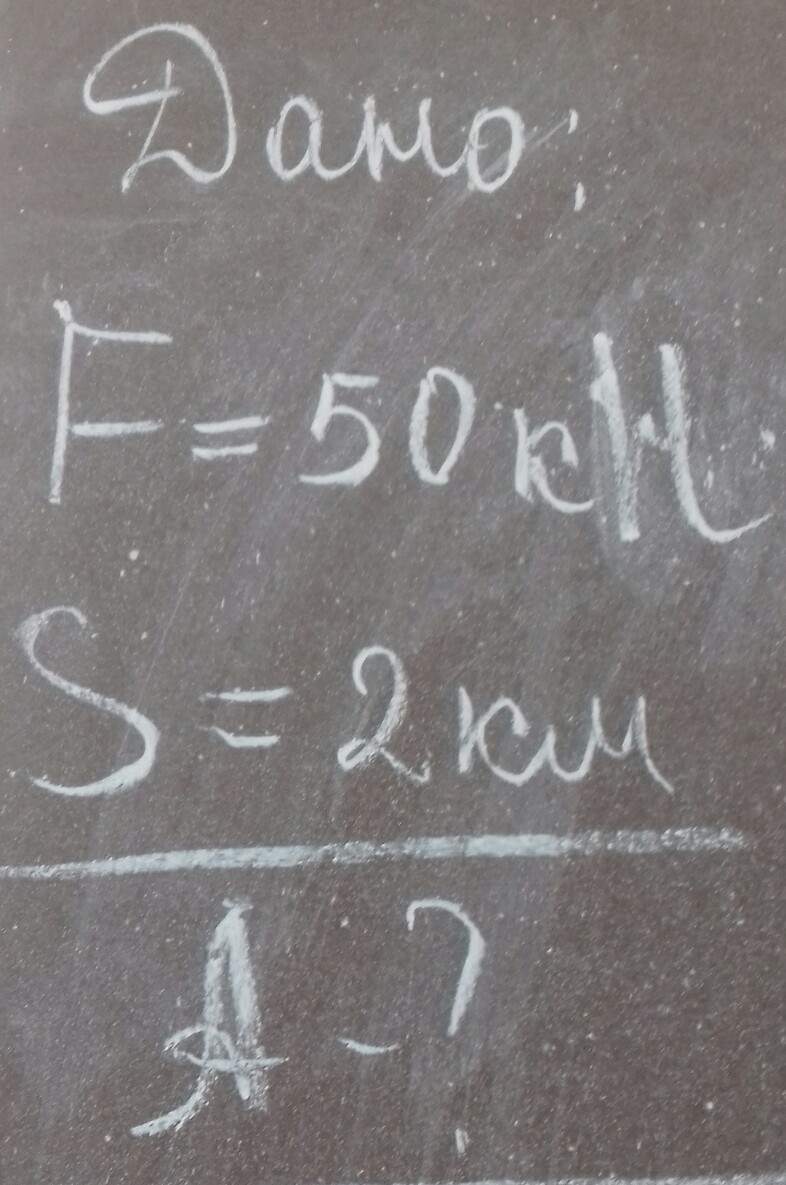 Дано:
F = 50 кН
S = 2 км
A - ?